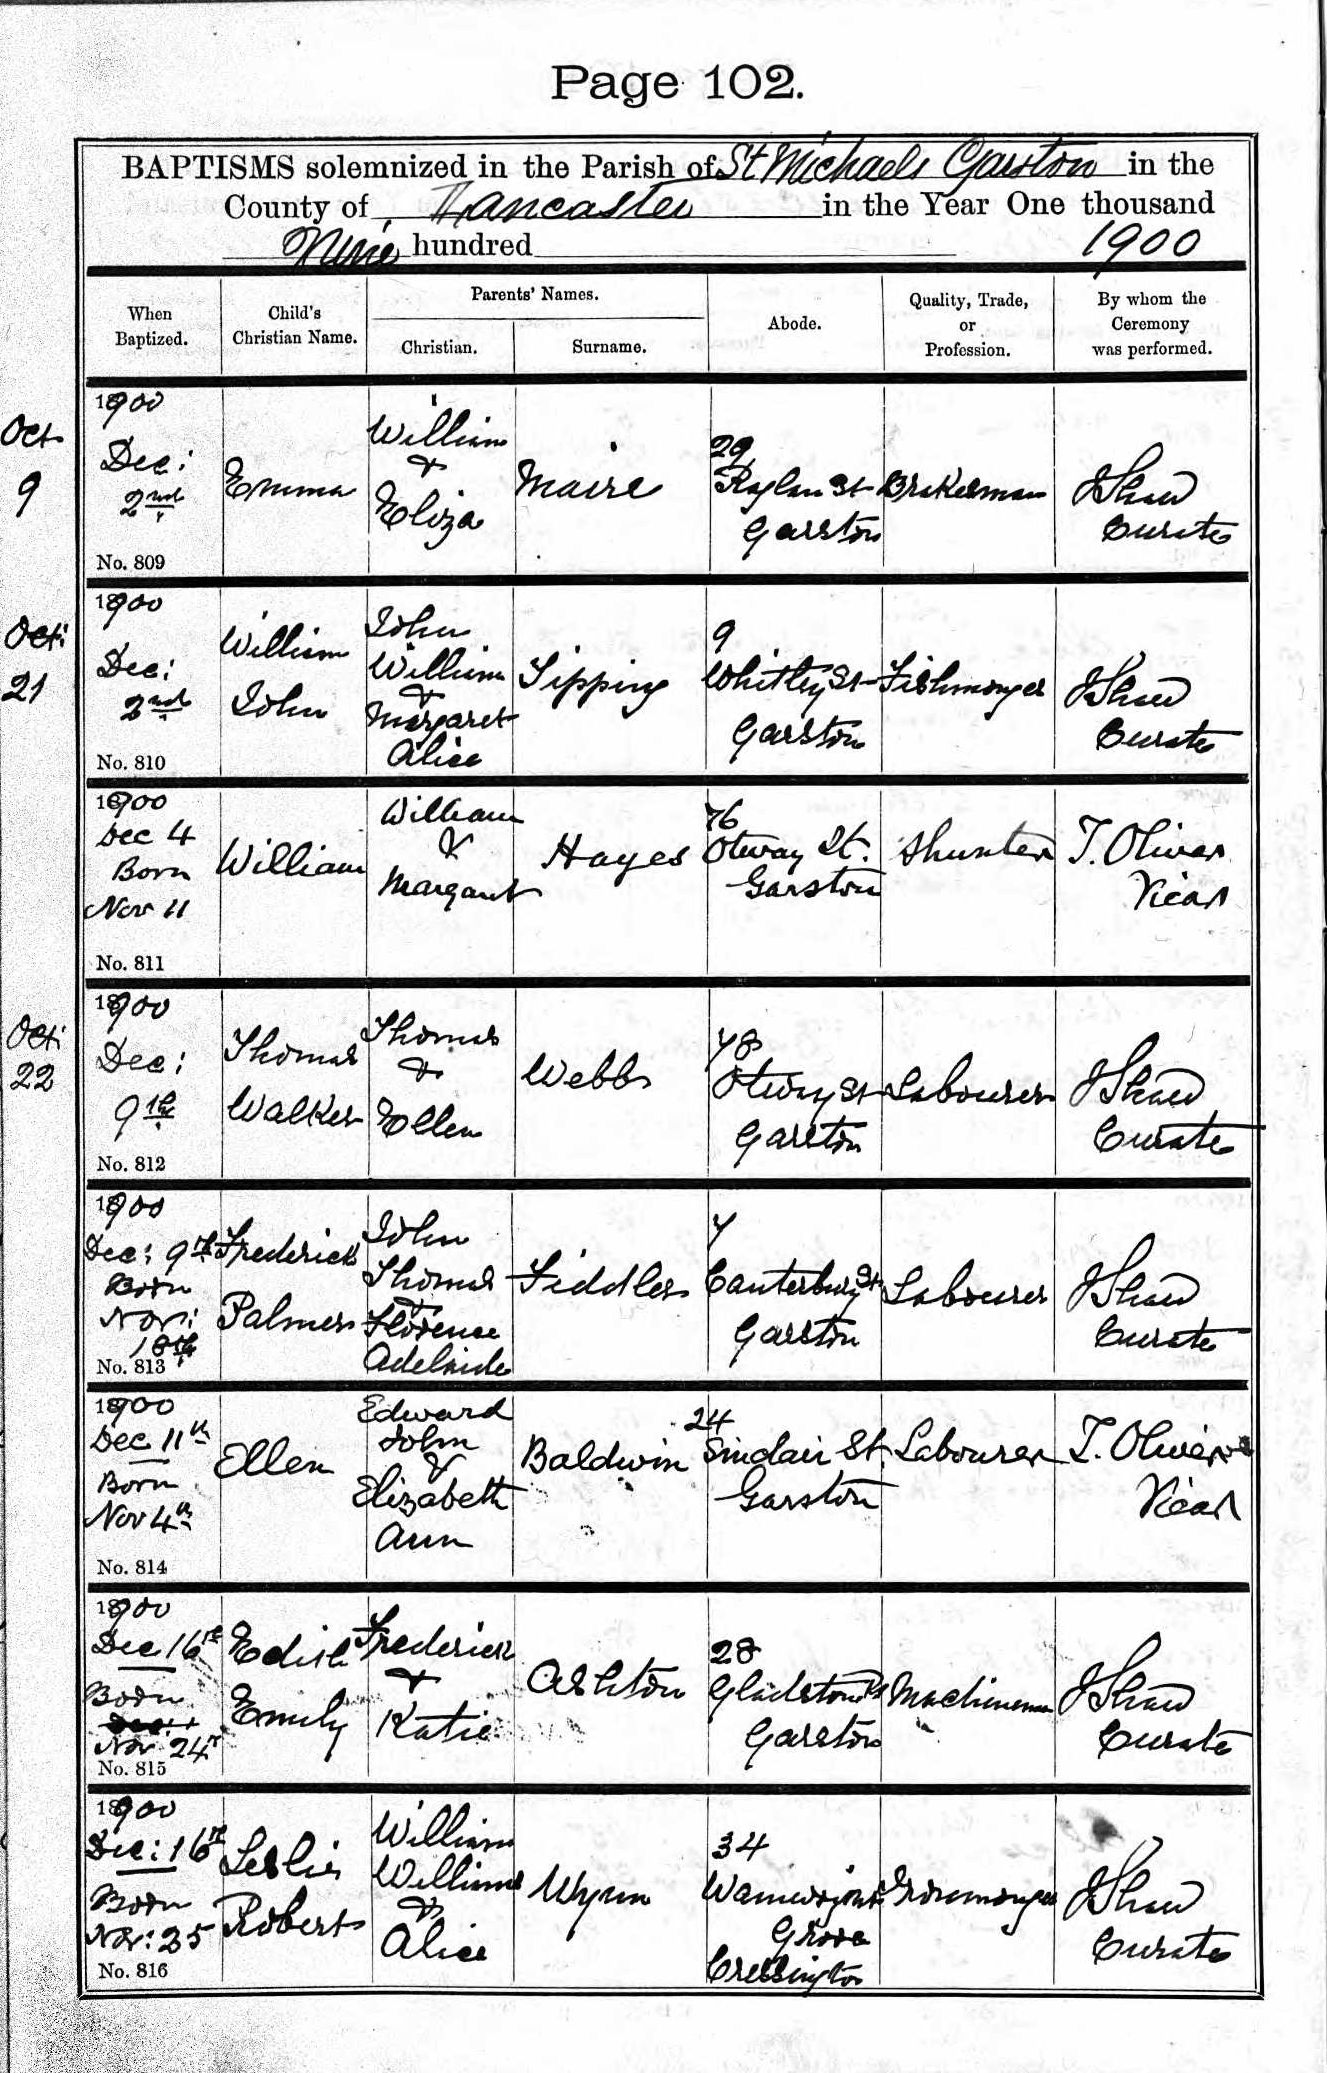 Page 102.
BAPTISMS solemnized in the Parish of St Michaels Garston in the
County of Lancaster in the Year One thousand
Nine hundred 1900
When Baptized.
Child's Christian Name.
Parents' Names.
Christian.
Surname.
Abode.
Quality, Trade, or Profession.
By whom the Ceremony was performed.
Oct
9
1900
Dec:
2nd
No. 809
Emma
William
&
Eliza
Maire
29
Raglan St
Garston
Brakesman
J Shaw
Curate
Oct:
21
1900
Dec:
2nd
No. 810
William
John
John
William
&
Margaret
Alice
Tipping
9
Whitley St
Garston
Fishmonger
J Shaw
Curate
1900
Dec 4
Born
Nov 11
No. 811
William
William
&
Margaret
Hayes
76
Otway St.
Garston
Shunter
T. Oliver
Vicar
Oct:
22
1900
Dec:
9th
No. 812
Thomas
Walker
Thomas
&
Ellen
Webb
78
Otway St
Garston
Labourer
J Shaw
Curate
1900
Dec: 9th
Born
Nov:
18th
No. 813
Frederick
Palmer
John
Thomas
&
Florence
Adelaide
Fiddler
7
Canterbury St
Garston
Labourer
J Shaw
Curate
1900
Dec 11th
Born
Nov 4th
No. 814
Ellen
Edward
John
&
Elizabeth
Ann
Baldwin
24
Sinclair St.
Garston
Labourer
T. Oliver
Vicar
1900
Dec 16th
Born
Dec:
Nov 24th
No. 815
Edith
Emily
Frederick
&
Katie
Ashton
28
Gladstone Rd
Garston
Machineman
J Shaw
Curate
1900
Dec: 16th
Born
Nov: 25
No. 816
Leslie
Robert
William
Williams
&
Alice
Wynn
34
Wainwright
Grove
Cressington
Ironmonger
J Shaw
Curate